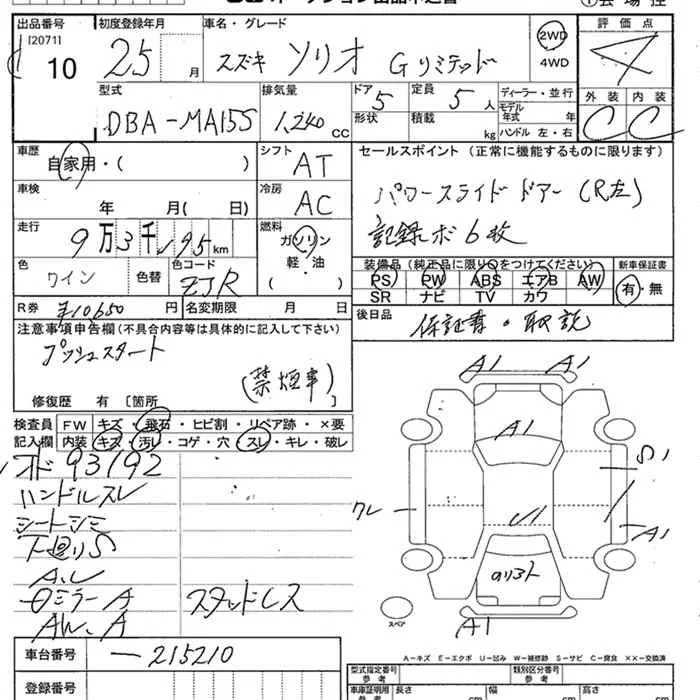 出品番号 初度登録年月 車名・グレード 評価点
10 25 月 スズキ ソリオ Gリミテッド 2WD 4WD 4
型式 排気量 ドア 5 定員 5 人 ディーラー・並行 外装 内装
DBA-MA15S 1,240 CC 形状 積載 kg モデル年式 年 ハンドル 左・右 C C
車歴 自家用・( ) シフト AT セールスポイント (正常に機能するものに限ります)
車検 年 月( 日) 冷房 AC パワースライドドアー(R左)
走行 9万3千195km 燃料 ガソリン 軽・油 記録ボ6枚
色 ワイン 色替 色コード ZJR 装備品 (純正品に限り○をつけてください) 新車保証書
PS PW ABS エアB AW 有・無
SR ナビ TV カワ
R券 ¥10650 円 名変期限 月 日 後日品 保証書・取説
注意事項申告欄 (不具合内容等は具体的に記入して下さい)
プッシュスタート
(禁煙車)
修復歴 有 〔箇所 〕
検査員 FW キズ・飛石・ヒビ割・リペア跡・×要
記入欄 内装 キズ・汚レ・コゲ・穴・スレ・キレ・破レ
オド93192
ハンドルスレ
シートシミ
下廻りS
ミラーA スタッドレス
AW、A
A1 A1
A1
S1
A1
A1
スペア
A=キズ E=エクボ U=凹み W=補修跡 S=サビ C=腐食 ××=交換済
車台番号 -215210
登録番号
型式指定番号 参考 類別区分番号 参考
車庫証明用 参考 長さ cm 幅 cm 高さ cm